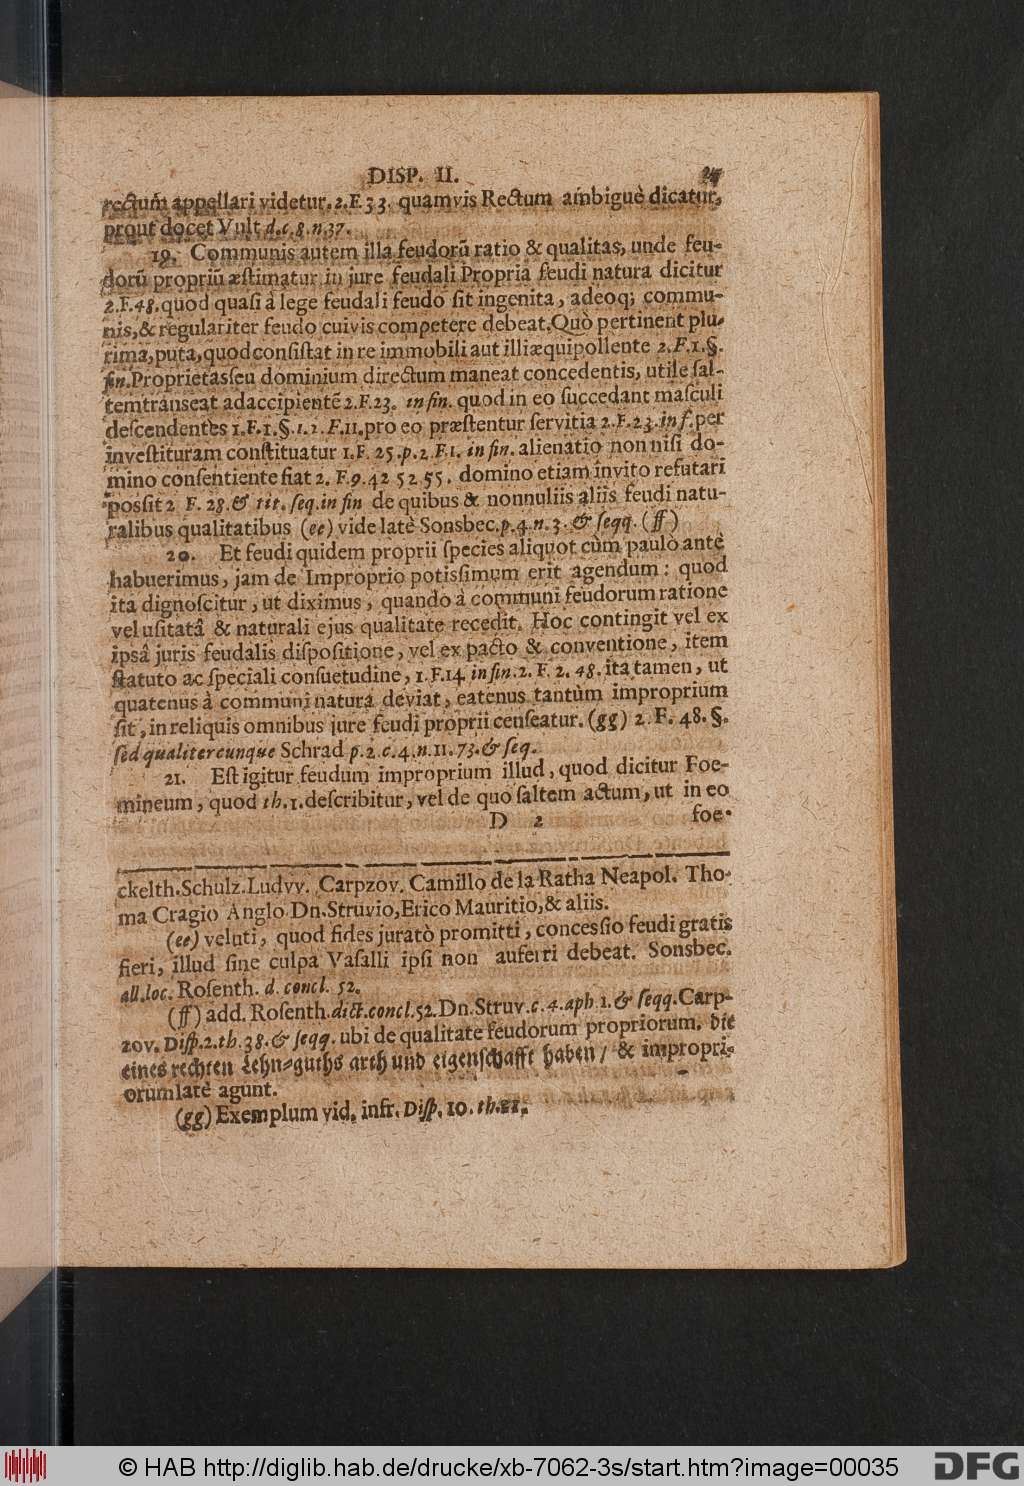 DISP. II. 27
rectum appellari videtur. 2. F. 33. quamvis Rectum ambiguè dicatur,
prout docet Vult d. c. 8. n. 37.
19. Communis autem illa feudorũ ratio & qualitas, unde feu-
dorũ propriũ æstimatur in jure feudali Propria feudi natura dicitur
2. F. 48. quod quasi à lege feudali feudo sit ingenita, adeoq; commu-
nis, & regulariter feudo cuivis competere debeat. Quò pertinent plu-
rima, puta, quod consistat in re immobili aut illi æquipollente 2. F. 1. §.
fin. Proprietas seu dominium directum maneat concedentis, utile sal-
tem transeat ad accipientẽ 2. F. 23. in fin. quod in eo succedant masculi
descendentes 1. F. 1. §. 1. 2. F. 11. pro eo præstentur servitia 2. F. 23. in f. per
investituram constituatur 1. F. 25. p. 2. F. 1. in fin. alienatio non nisi do-
mino consentiente fiat 2. F. 9. 42 52 55. domino etiam invito refutari
possit 2 F. 28. & tit. seq. in fin de quibus & nonnuliis aliis feudi natu-
ralibus qualitatibus (ee) vide latè Sonsbec. p. 4. n. 3. & seqq. (ff)
20. Et feudi quidem proprii species aliquot cùm paulò antè
habuerimus, jam de Improprio potissimum erit agendum: quod
ita dignoscitur, ut diximus, quando à communi feudorum ratione
vel usitatâ & naturali ejus qualitate recedit. Hoc contingit vel ex
ipsâ juris feudalis dispositione, vel ex pacto & conventione, item
statuto ac speciali consuetudine, 1. F. 14. in fin. 2. F. 2. 48. ita tamen, ut
quatenus à communi natura deviat, eatenus tantùm improprium
sit, in reliquis omnibus jure feudi proprii censeatur. (gg) 2. F. 48. §.
sed qualitercunque Schrad p. 2. c. 4. n. 11. 73. & seq.
21. Est igitur feudum improprium illud, quod dicitur Foe-
mineum, quod th. 1. describitur, vel de quo saltem actum, ut in eo
D 2 foe-
ckelth. Schulz. Ludvv. Carpzov. Camillo de la Ratha Neapol. Tho-
ma Cragio Anglo Dn. Struvio, Erico Mauritio, & aliis.
(ee) veluti, quod fides juratò promitti, concessio feudi gratis
fieri, illud sine culpa Vasalli ipsi non auferri debeat. Sonsbec.
all. loc. Rosenth. d. concl. 52.
(ff) add. Rosenth. dict. concl. 52. Dn. Struv. c. 4. aph. 1. & seqq. Carp-
zov. Disp. 2. th. 38. & seqq. ubi de qualitate feudorum propriorum, die
eines rechten Lehn-guths arth und eigenschafft haben / & impropri-
orum latè agunt.
(gg) Exemplum vid. infr. Disp. 10. th. 21.
© HAB http://diglib.hab.de/drucke/xb-7062-3s/start.htm?image=00035
DFG